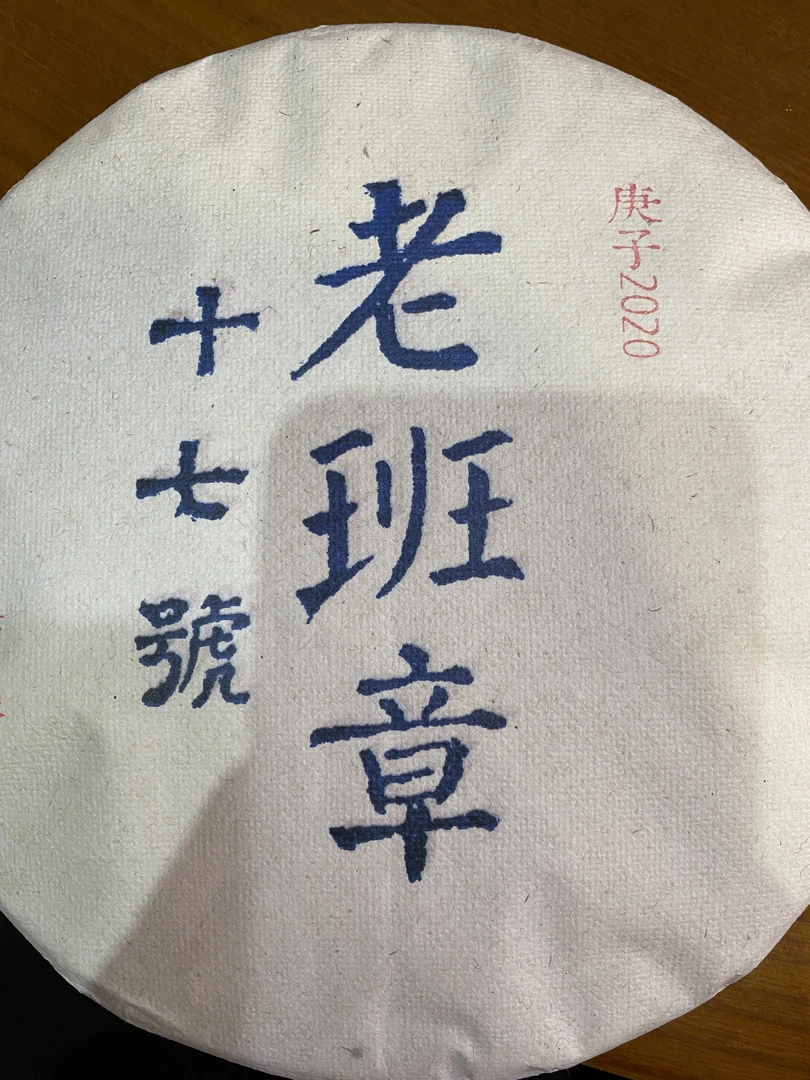 庚子2020
老班章
十七號